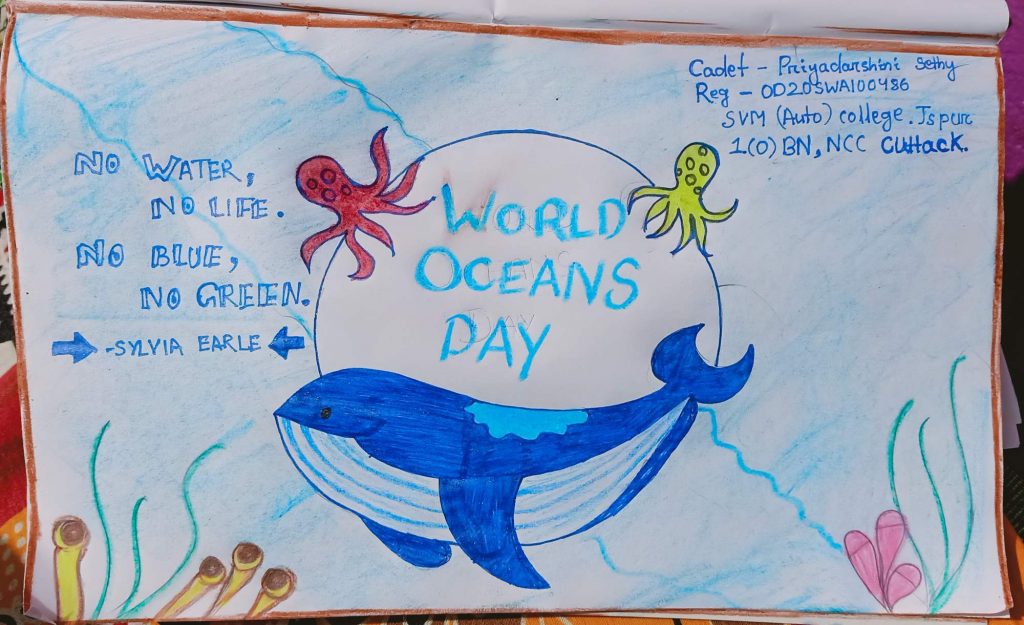 Cadet - Priyadarshini Sethy
Reg - OD20SWA100486
SVM (Auto) college. Jspur
1(O) BN, NCC CUttack.
NO WATER,
NO LIFE.
NO BLUE,
NO GREEN.
-SYLVIA EARLE
WORLD
OCEANS
DAY